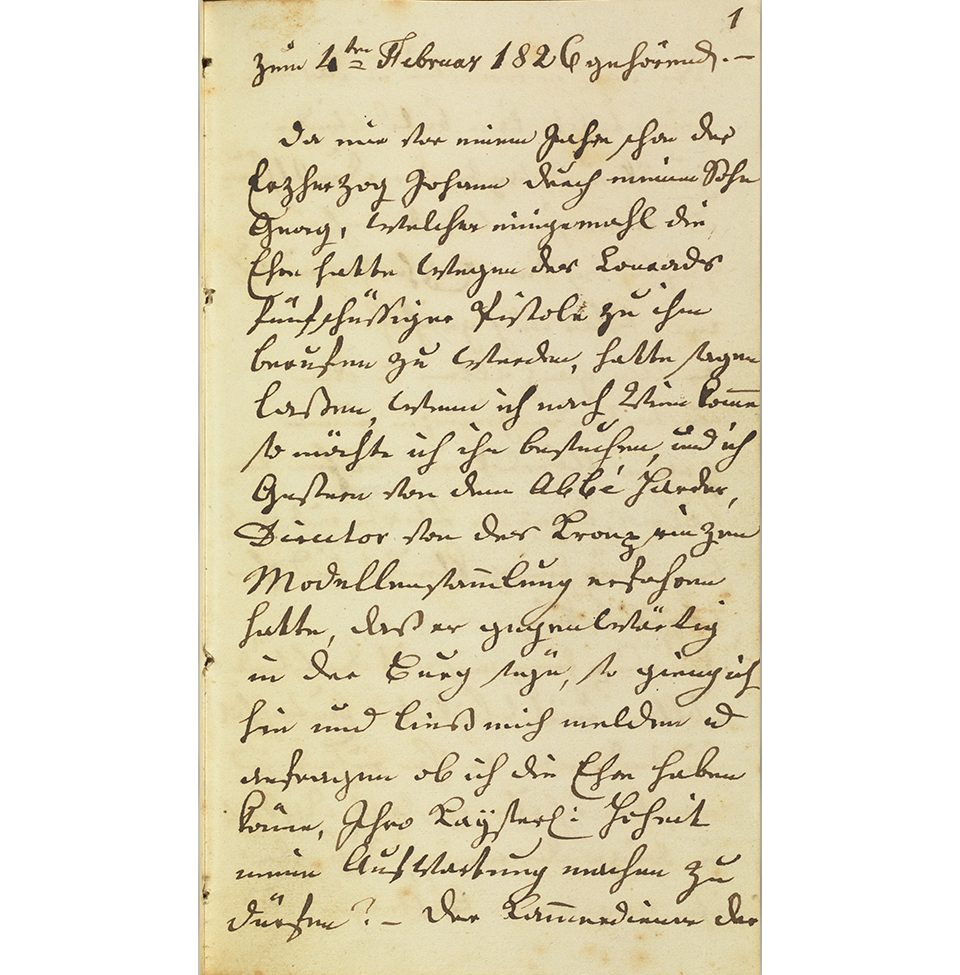 1
zum 4ten Februar 1826 gehörend. –
Da mir vor einem Jahre schon der
Erzherzog Johann durch meinen Sohn
Georg, welcher einigemahl die
Ehre hatte wegen des Conrads
fünfschüssiger Pistole zu ihm
berufen zu werden, hatte sagen
laßen, wenn ich nach Wien komme
so möchte ich ihn besuchen, und ich
Gestern von dem Abbé Harder,
Director von der Kronprinzen
Modellensam̅lung erfahren
hatte, daß er gegenwärtig
in der Burg seÿe, so gieng ich
hin und ließ mich melden u
anfragen ob ich die Ehre haben
kön̅e, Ihro Kaÿserl: Hoheit
meine Aufwartung machen zu
dürfen? – Der Kam̅erdiener der